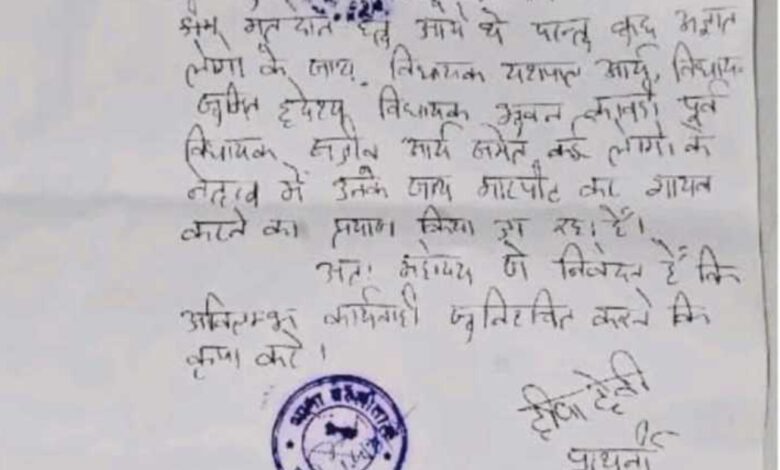 मतदान हेतु आये थे परन्तु कुछ अज्ञात
लोगो के साथ. विधायक यशपाल आर्य, विधायक
सुमित हृदयेश, विधायक भुवन कापडी पूर्व
विधायक संजीव आर्य समेत कई लोगो के
नेतृत्व में उनके साथ मारपीट कर गायब
करने का प्रयास किया जा रहा है।
अतः महोदय से निवेदन है कि
अविलम्ब कार्यवाही सुनिश्चित करने कि
कृपा करे।
थाना तल्लीताल
दीपा देवी
प्रार्थनी